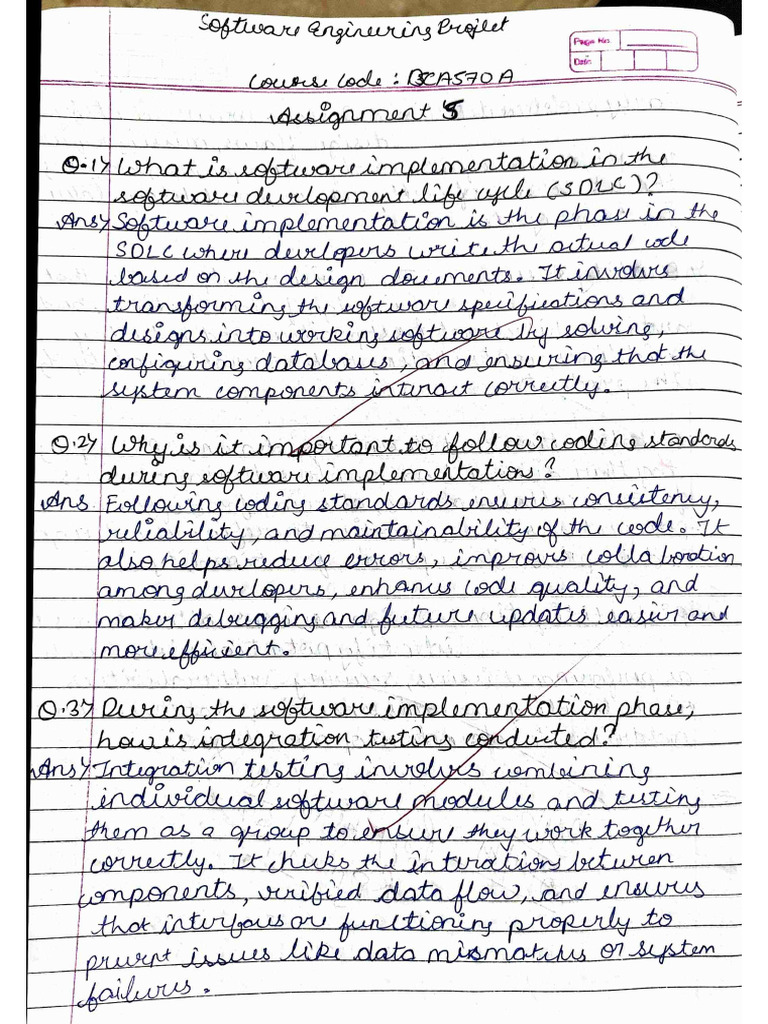 Software Engineering Project
Page No.
Date
Course Code : BCA570A
Assignment 5
Q.1) What is software implementation in the
software development life cycle (SDLC)?
Ans) Software implementation is the phase in the
SDLC where developers write the actual code
based on the design documents. It involves
transforming the software specifications and
designs into working software by solving,
configuring databases, and ensuring that the
system components interact correctly.
Q.2) Why is it important to follow coding standards
during software implementations?
Ans Following coding standards ensures consistency,
reliability, and maintainability of the code. It
also helps reduce errors, improves collaboration
among developers, enhances code quality, and
makes debugging and future updates easier and
more efficient.
Q.3) During the software implementation phase,
how is integration testing conducted?
Ans) Integration testing involves combining
individual software modules and testing
them as a group to ensure they work together
correctly. It checks the interations between
components, verified data flow, and ensures
that interfaces are functioning properly to
prevent issues like data mismatches or system
failures.